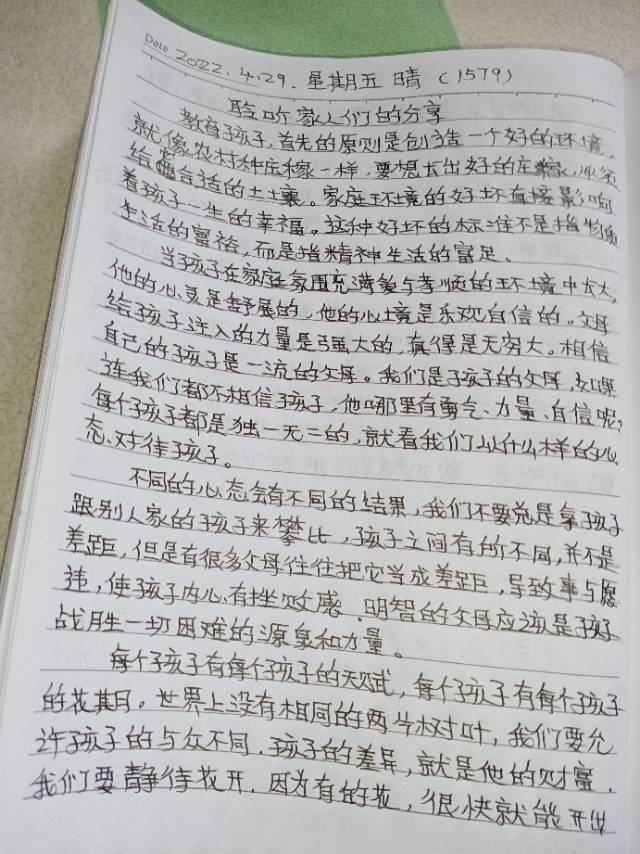 Date 2022.4.29.星期五 晴 (1579)
聆听家人们的分享
教育孩子,首先的原则是创造一个好的环境,
就像农村种庄稼一样,要想长出好的庄稼,必须
给合适的土壤。家庭环境的好坏直接影响
着孩子一生的幸福。这种好坏的标准不是指物质
生活的富裕,而是指精神生活的富足。
当孩子在家庭氛围充满爱与孝顺的环境中长大,
他的心灵是舒展的,他的心境是乐观自信的。父母
给孩子注入的力量是强大的,真得是无穷大。相信
自己的孩子是一流的父母。我们是孩子的父母,如果
连我们都不相信孩子,他哪里有勇气、力量、自信呢?
每个孩子都是独一无二的,就看我们以什么样的心
态对待孩子。
不同的心态会有不同的结果,我们不要总是拿孩子
跟别人家的孩子来攀比,孩子之间有所不同,并不是
差距,但是有很多父母往往把它当成差距,导致事与愿
违,使孩子内心有挫败感.明智的父母应该是孩子
战胜一切困难的源泉和力量。
每个孩子有每个孩子的天赋,每个孩子有每个孩子
的花期。世界上没有相同的两片树叶,我们要允
许孩子的与众不同.孩子的差异,就是他的财富.
我们要静待花开.因为有的花,很快就能开华